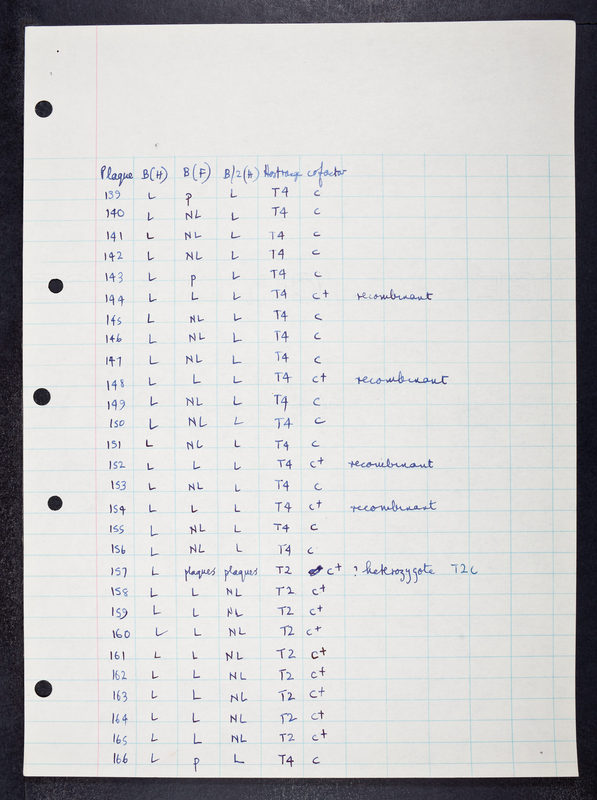 Plaque B(H) B(F) B/2(H) Hostrange cofactor
139 L p L T4 c
140 L NL L T4 c
141 L NL L T4 c
142 L NL L T4 c
143 L p L T4 c
144 L L L T4 c+ recombinant
145 L NL L T4 c
146 L NL L T4 c
147 L NL L T4 c
148 L L L T4 c+ recombinant
149 L NL L T4 c
150 L NL L T4 c
151 L NL L T4 c
152 L L L T4 c+ recombinant
153 L NL L T4 c
154 L L L T4 c+ recombinant
155 L NL L T4 c
156 L NL L T4 c
157 L plaques plaques T2 c+ ? heterozygote T2c
158 L L NL T2 c+
159 L L NL T2 c+
160 L L NL T2 c+
161 L L NL T2 c+
162 L L NL T2 c+
163 L L NL T2 c+
164 L L NL T2 c+
165 L L NL T2 c+
166 L p L T4 c